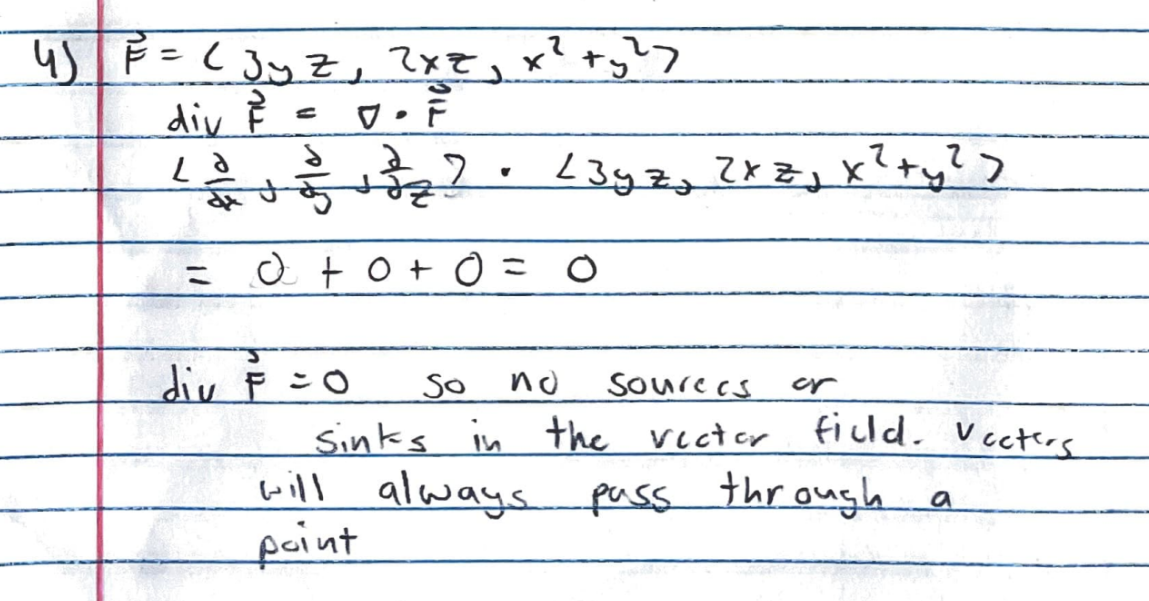 4) F⃗ = ⟨3yz, 2xz, x²+y²⟩
div F⃗ = ∇ · F⃗
⟨∂/∂x, ∂/∂y, ∂/∂z⟩ · ⟨3yz, 2xz, x²+y²⟩
= 0 + 0 + 0 = 0
div F⃗ = 0 so no sources or
sinks in the vector field. Vectors
will always pass through a
point